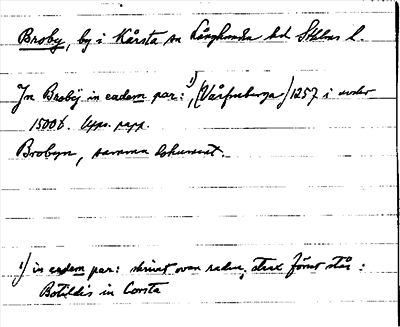 Broby, by i Kårsta sn Långhundra hd Sthlms l.
Jn Broby in eadem par: 1), (Vårfruberga) 1257 i avskr
1500t. Upps. papp.
Brobyn, samma dokument.
1) in eadem par: skrivet ovan raden, strax förut står:
Botildis in Corsta